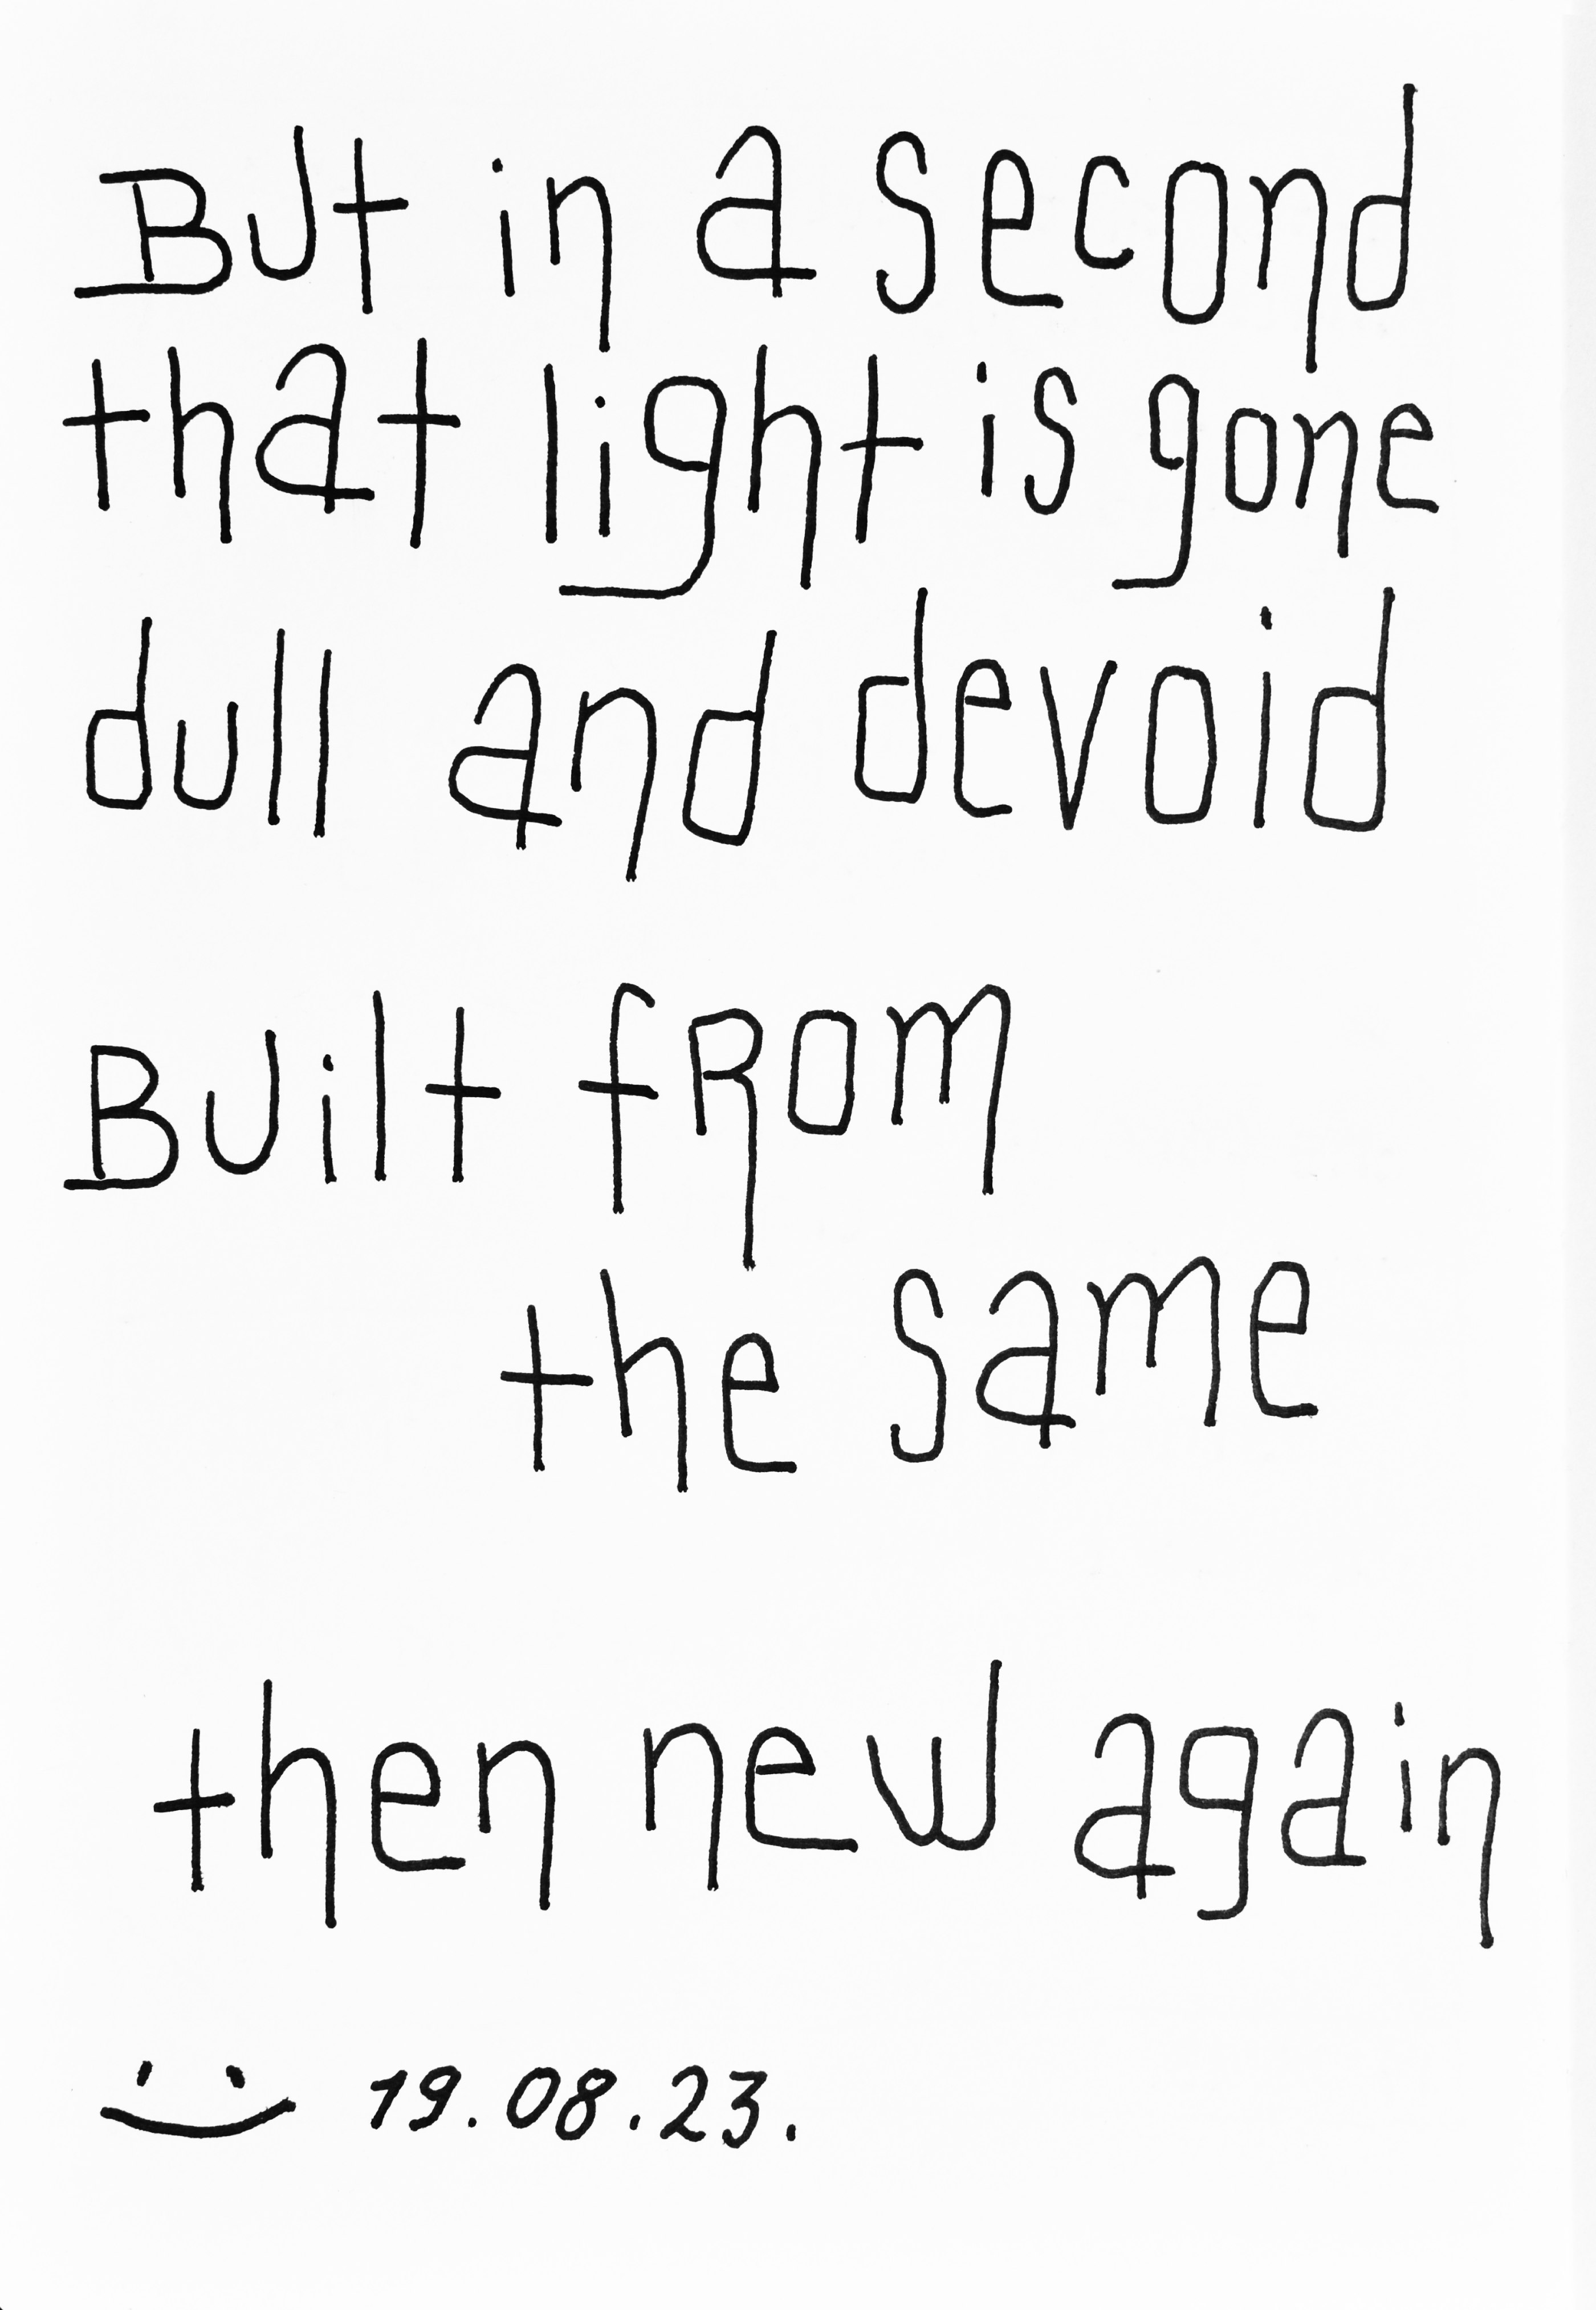 But in a second
that light is gone
dull and devoid
Built fRom
the same
then new again
19.08.23.